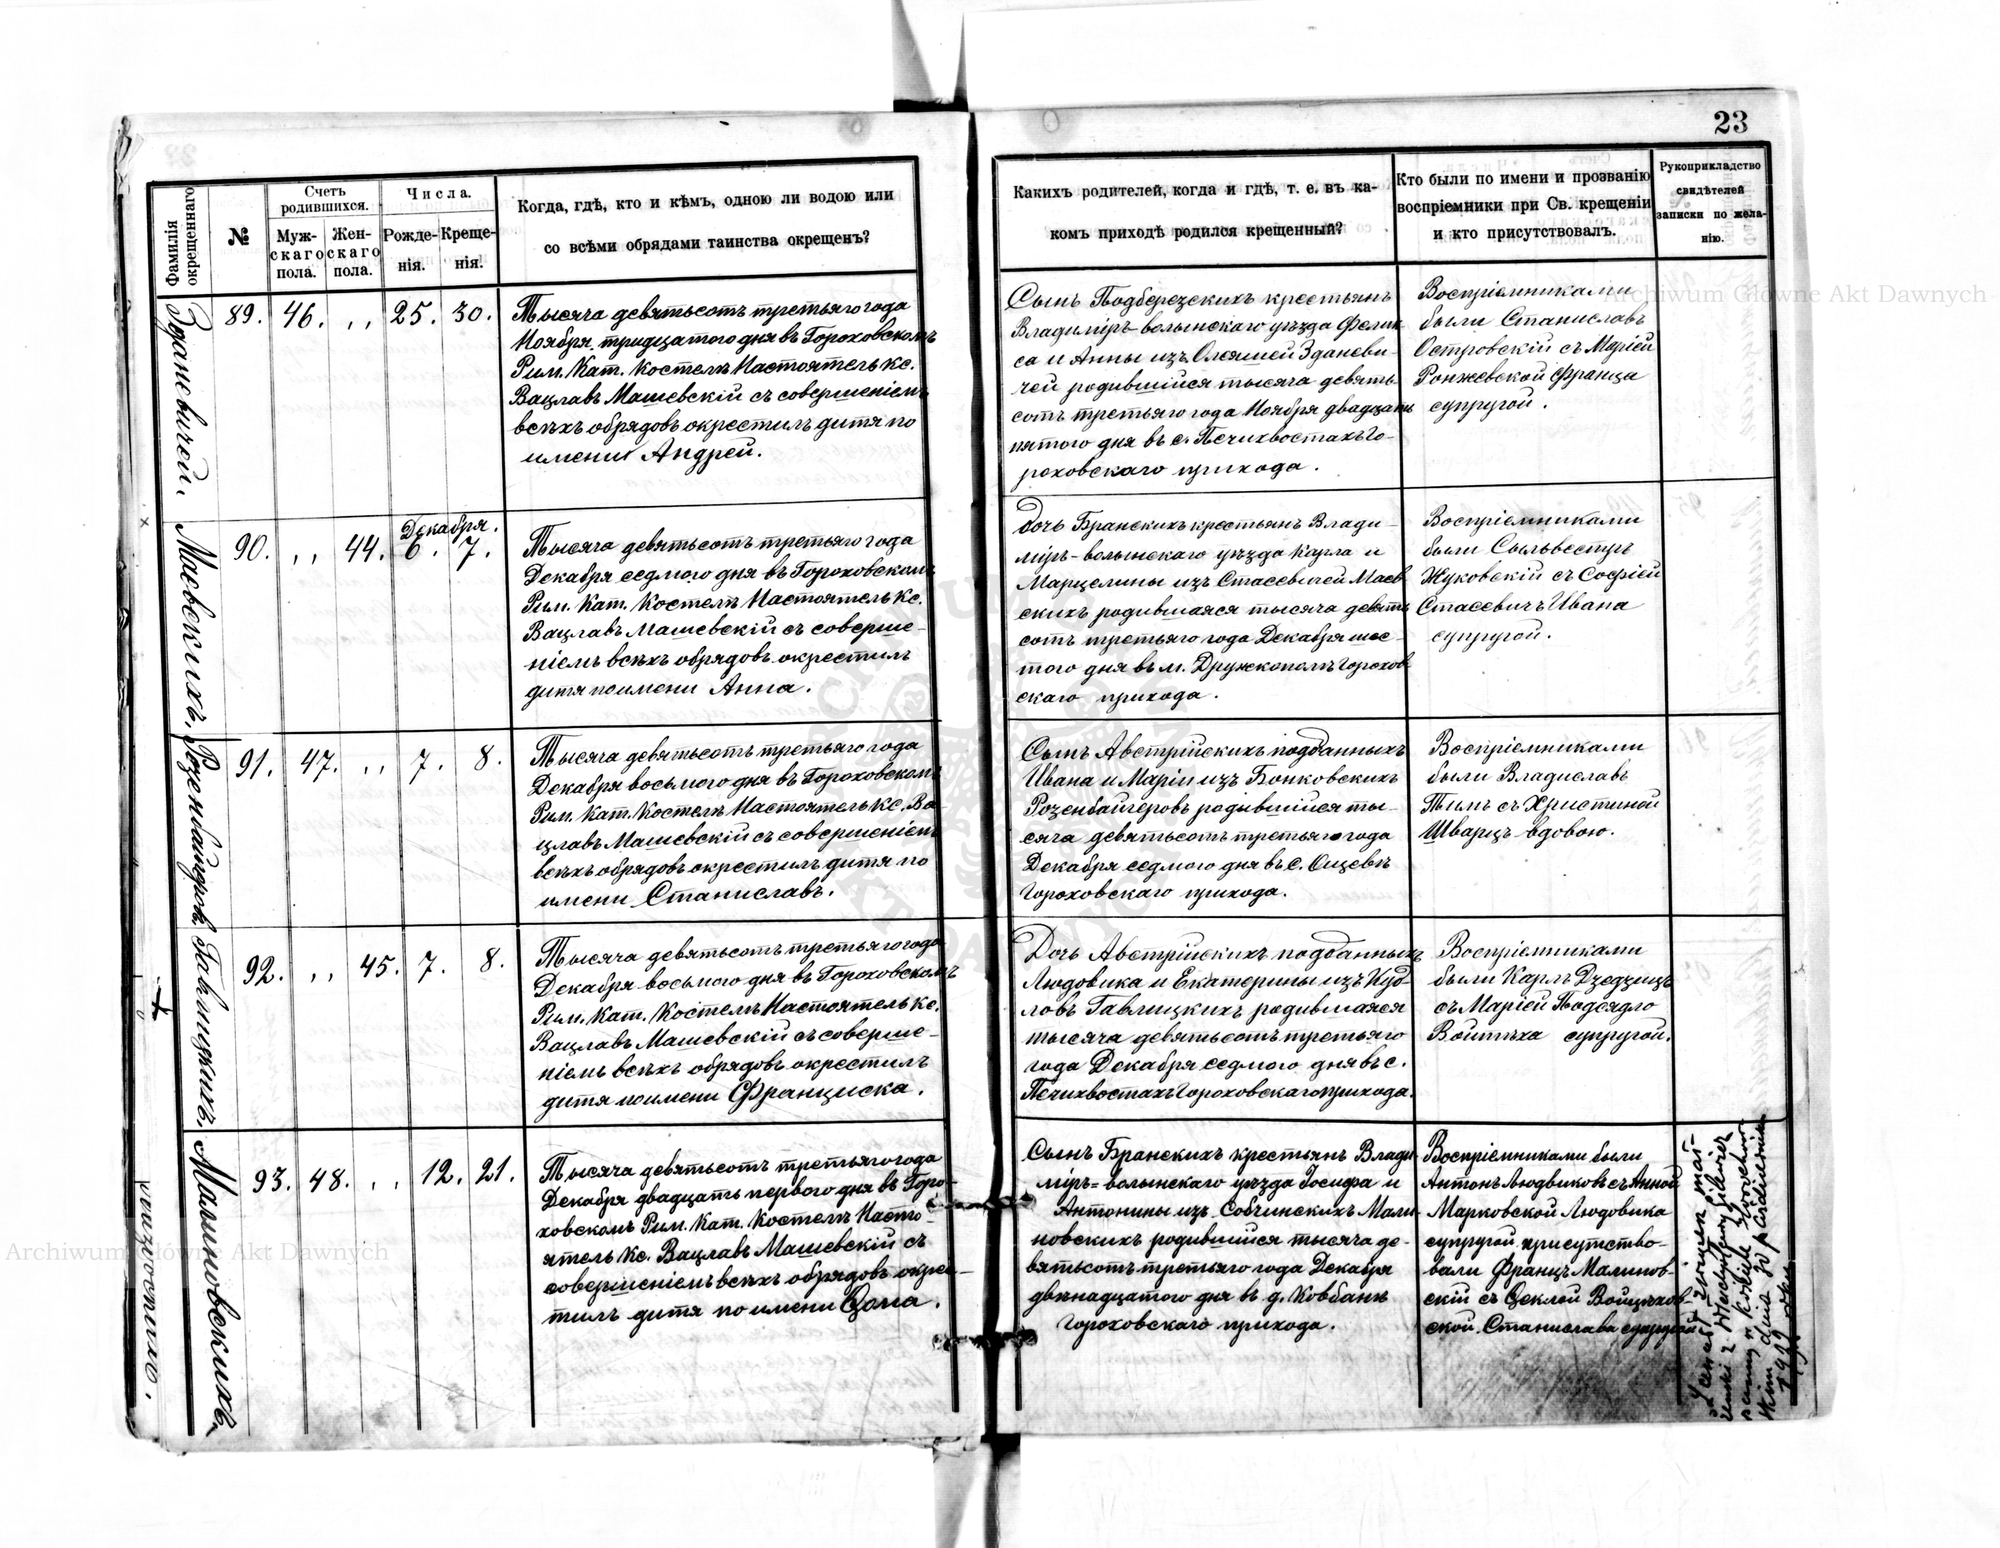 23
Фамилія окрещеннаго
№
Счетъ родившихся.
Муж-
скаго
пола.
Жен-
скаго
пола.
Числа.
Рожде-
нія.
Креще-
нія.
Когда, гдѣ, кто и кѣмъ, одною ли водою или
со всѣми обрядами таинства окрещенъ?
Какихъ родителей, когда и гдѣ, т. е. въ ка-
комъ приходѣ родился крещенный?
Кто были по имени и прозванію
воспріемники при Св. крещеніи
и кто присутствовалъ.
Рукоприкладство
свидѣтелей
записки по жела-
нію.
Здановичей.
89. 46. ,, 25. 30.
Тысяча девятьсотъ третьяго года
Ноября тридцатого дня въ Гороховскомъ
Рим. Кат. Костелѣ Настоятель Кс.
Вацлавъ Машевскій съ совершеніемъ
всѣхъ обрядовъ окрестилъ дитя по
имени Андрей.
Сынъ Подберезскихъ крестьянъ
Владиміръ-волынскаго уѣзда Фелик
са и Анны изъ Олеяшей Зданеви-
чей родившійся тысяча девять
сотъ третьяго года Ноября двадцать
пятого дня въ с. Печихвостахъ Го-
роховскаго прихода.
Воспріемниками
были Станиславъ
Островскій съ Маріей
Ронжевской Франца
супругой.
Маевскихъ.
Декабря.
90. ,, 44. 6. 7.
Тысяча девятьсотъ третьяго года
Декабря седмого дня въ Гороховскомъ
Рим. Кат. Костелѣ Настоятель Кс.
Вацлавъ Машевскій съ соверше-
ніемъ всѣхъ обрядовъ окрестилъ
дитя по имени Анна.
Дочь Бранскихъ крестьянъ Влади-
міръ-волынскаго уѣзда Карла и
Марцелины изъ Стасевичей Маев
скихъ родившаяся тысяча девять
сотъ третьяго года Декабря шес-
того дня въ м. Дружкополѣ Горохов
скаго прихода.
Воспріемниками
были Сыльвестръ
Жуковскій съ Софіей
Стасевичъ Ивана
супругой.
Розенбайгеровъ
91. 47. ,, 7. 8.
Тысяча девятьсотъ третьяго года
Декабря восьмого дня въ Гороховскомъ
Рим. Кат. Костелѣ Настоятель Кс. Ва
цлавъ Машевскій съ совершеніемъ
всѣхъ обрядовъ окрестилъ дитя по
имени Станиславъ.
Сынъ Австрійскихъ подданныхъ
Ивана и Маріи изъ Бонковскихъ
Розенбайгеровъ родившійся ты-
сяча девятьсотъ третьяго года
Декабря седмого дня въ с. Ощевѣ
Гороховскаго прихода.
Воспріемниками
были Владиславъ
Тимъ съ Христиной
Шварцъ вдовою.
Гавлицкихъ.
92. ,, 45. 7. 8.
Тысяча девятьсотъ третьяго года
Декабря восьмого дня въ Гороховскомъ
Рим. Кат. Костелѣ Настоятель Кс.
Вацлавъ Машевскій съ соверше-
ніемъ всѣхъ обрядовъ окрестилъ
дитя по имени Франциска.
Дочь Австрійскихъ подданныхъ
Людовика и Екатерины изъ
Гавлицкихъ родившаяся
тысяча девятьсотъ третьяго
года Декабря седмого дня въ с.
Печихвостахъ Гороховскаго прихода.
Воспріемниками
были Карлъ Дзедзицъ
съ Маріей Подсядло
Войтѣха супругой.
Малиновскихъ.
93. 48. ,, 12. 21.
Тысяча девятьсотъ третьяго года
Декабря двадцать первого дня въ Горо-
ховскомъ Рим. Кат. Костелѣ Насто-
ятель Кс. Вацлавъ Машевскій съ
совершеніемъ всѣхъ обрядовъ окрес-
тилъ дитя по имени Ѳома.
Сынъ Бранскихъ крестьянъ Влади
міръ-волынскаго уѣзда Іосифа и
Антонины изъ Собчинскихъ Мали
новскихъ родившійся тысяча де-
вятьсотъ третьяго года Декабря
двѣнадцатого дня въ д. Ковбанѣ
Гороховскаго прихода.
Воспріемниками были
Антонъ Людвиковъ съ Анной
Марковской Людовика
супругой присутство-
вали Францъ Малинов-
скій съ Ѳеклой Войцѣхов-
ской Станислава супругой
Archiwum Główne Akt Dawnych
Archiwum Główne Akt Dawnych